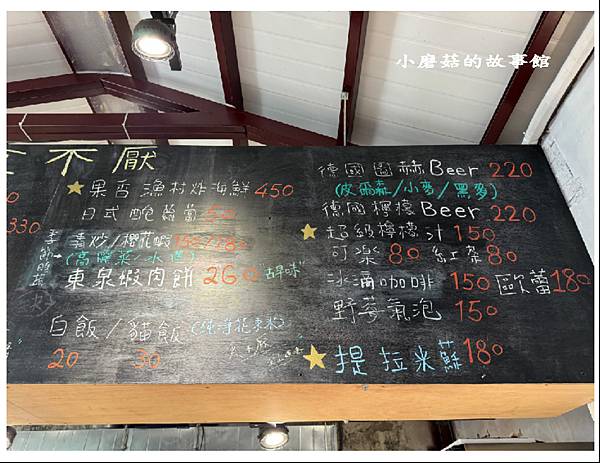 小磨菇的故事館
不厭
★果香漁村炸海鮮 450
日式醃蘿蔔 50
330
清炒/櫻花蝦 150/180
(高麗菜/水蓮)
東泉蝦肉餅 260 "胡味"
白飯/貓飯
20 30
德國圖赫Beer 220
(皮爾森/小麥/黑麥)
德國檸檬Beer 220
★超級檸檬汁 150
可樂 80 紅茶 80
冰滴咖啡 150 歐蕾 180
野莓氣泡 150
★提拉米蘇 180